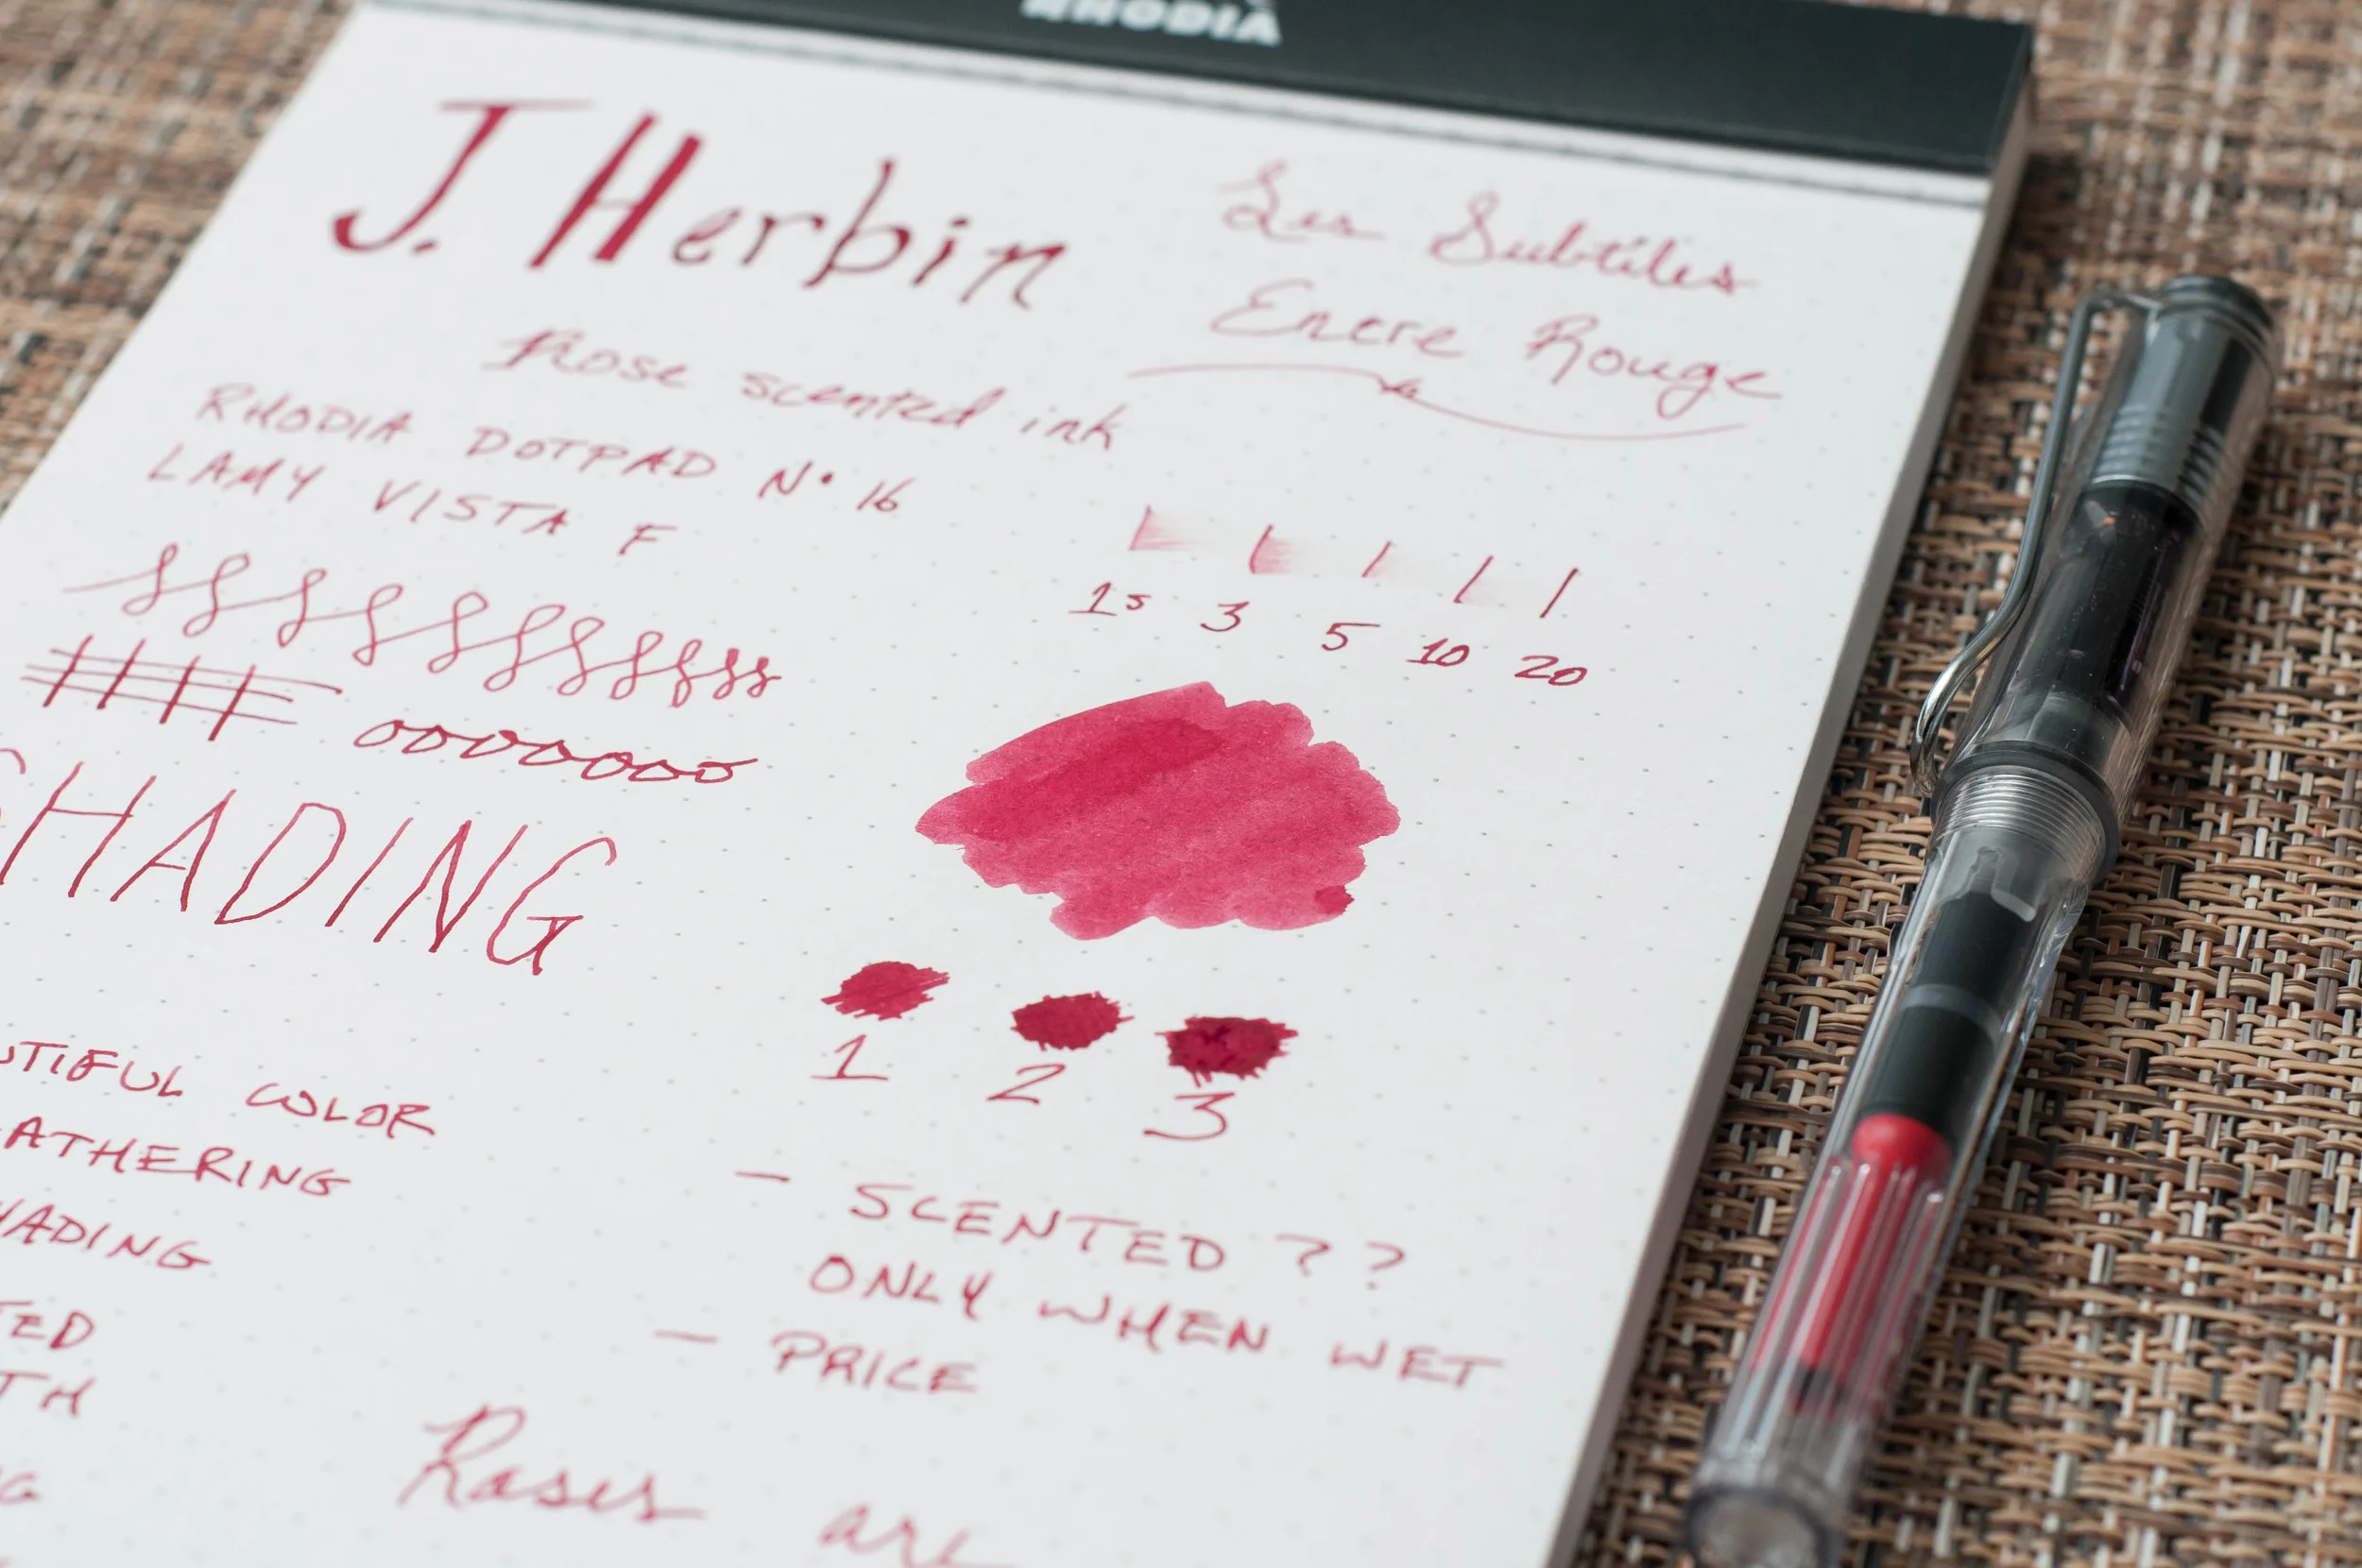 RHODIA
J. Herbin
Les Subtiles
Encre Rouge
Rose scented ink
RHODIA DOTPAD N° 16
LAMY VISTA F
1s 3 5 10 20
SHADING
1 2 3
UTIFUL COLOR
ATHERING
HADING
TED
TH
G
- SCENTED ??
ONLY WHEN WET
- PRICE
Roses are